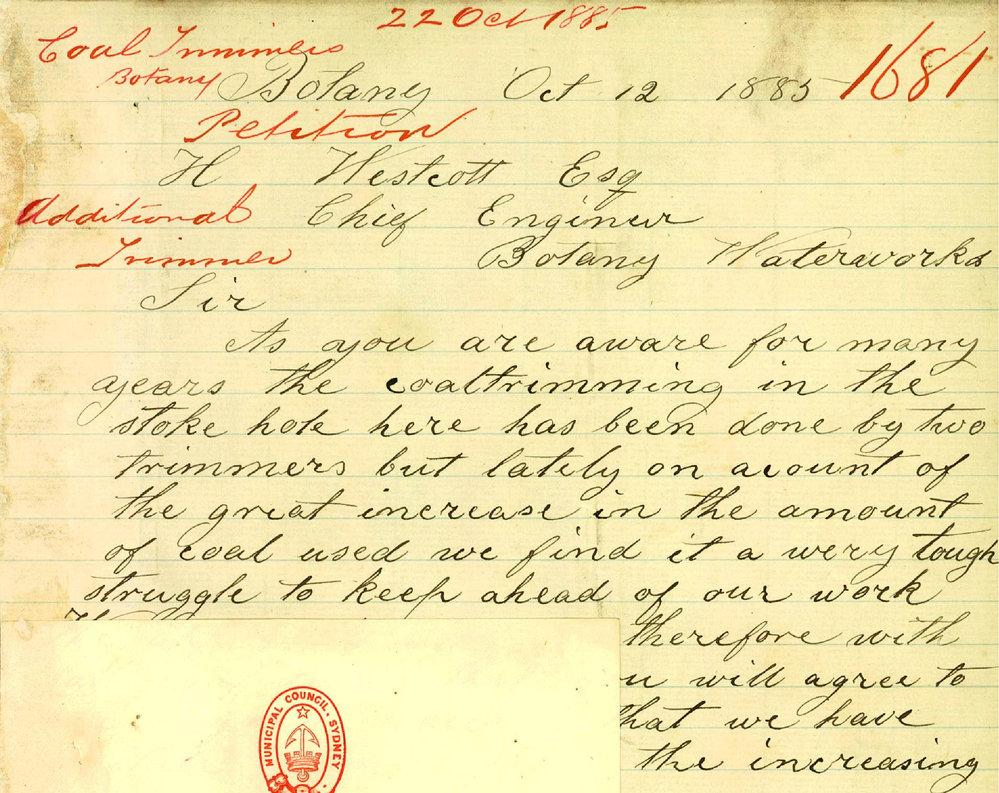 22 Oct 1885
Coal Trimmers
Botany
1681
Botany Oct 12 1885
Petition
H Westcott Esq
Additional
Chief Engineer
Trimmer
Botany Waterworks
Sir
As you are aware for many
years the coaltrimming in the
stoke hole here has been done by two
trimmers but lately on acount of
the great increase in the amount
of coal used we find it a wery tough
struggle to keep ahead of our work
therefore with
will agree to
that we have
the increasing
MUNICIPAL COUNCIL. SYDNEY